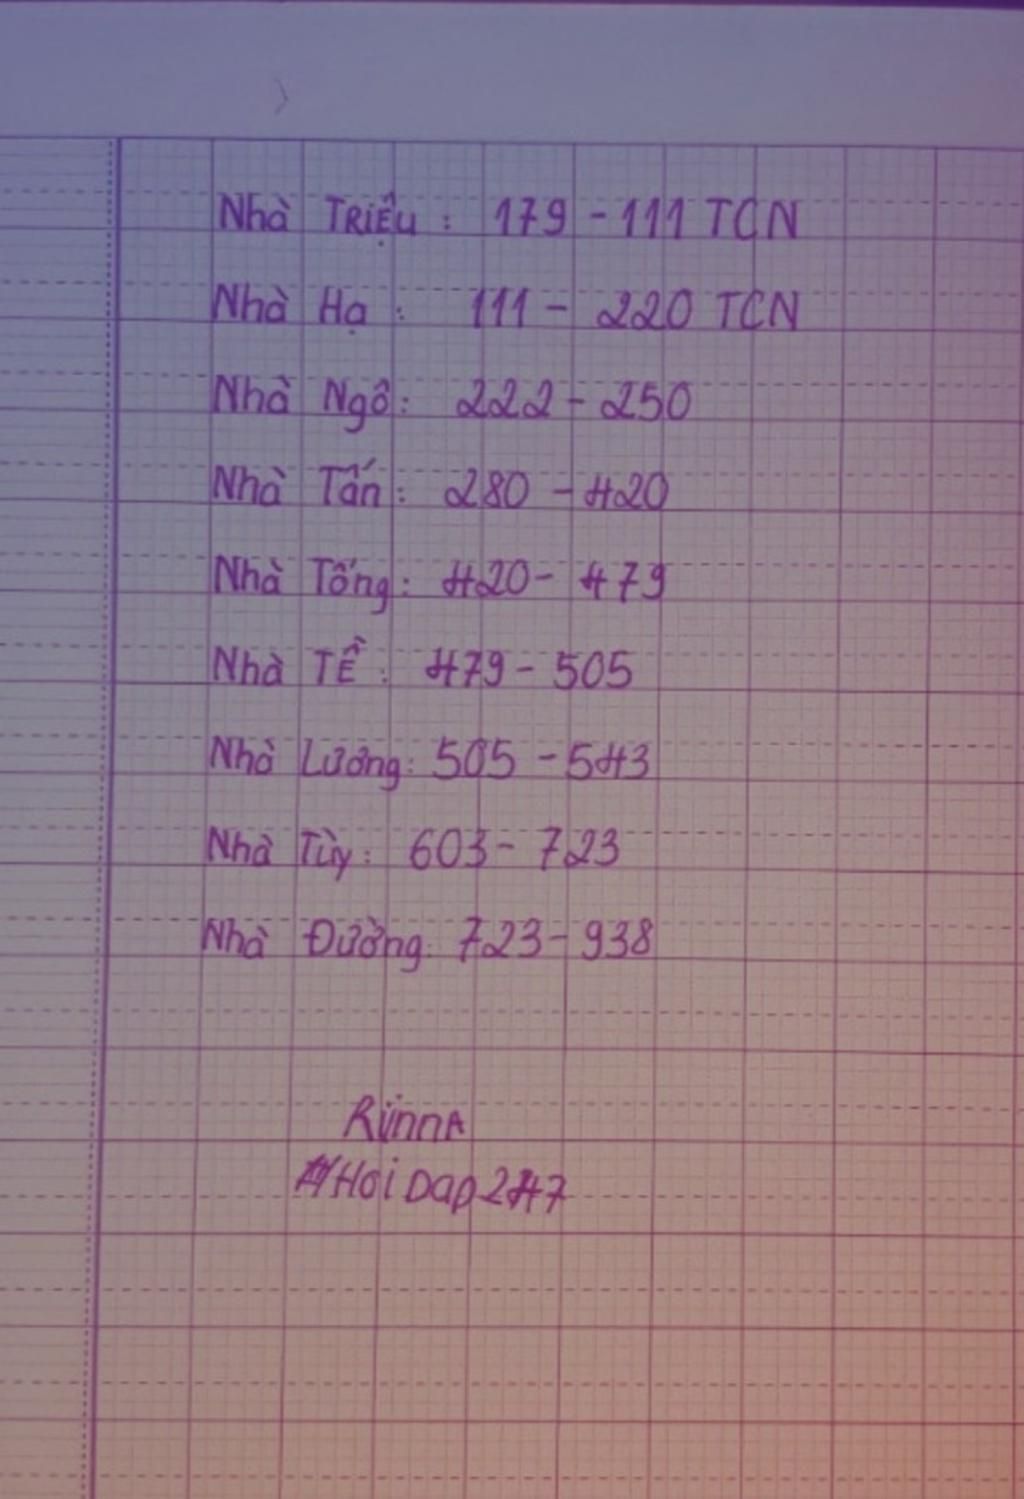 Nhà TRIỆU : 179 - 111 TCN
Nhà Hạ : 111 - 220 TCN
Nhà Ngô : 222 - 250
Nhà Tấn : 280 - 420
Nhà Tống : 420 - 479
Nhà TỀ : 479 - 505
Nhà Lương : 505 - 543
Nhà Tùy : 603 - 723
Nhà Đường : 723 - 938
RiinnA
#HoiDap247